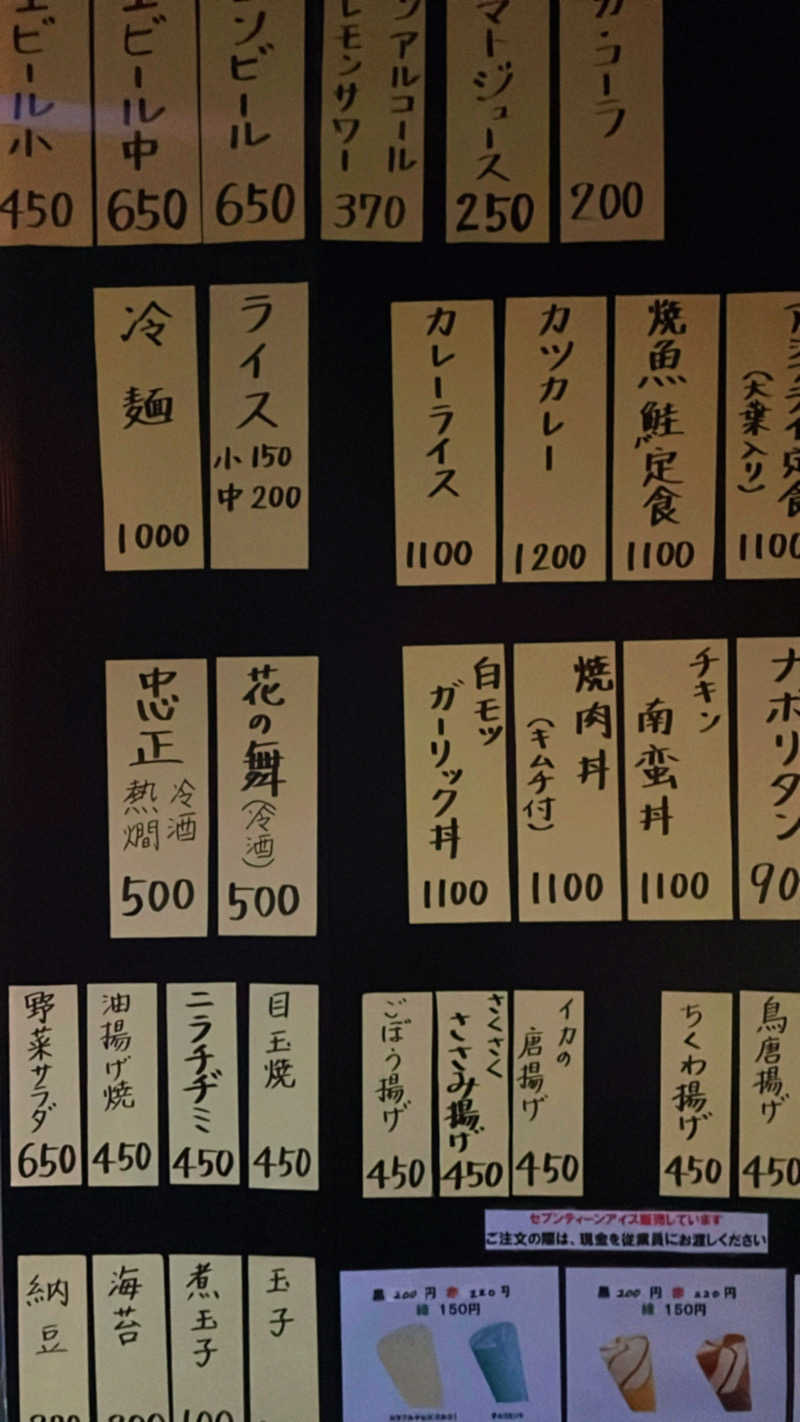 ビール小
450
ビール中
650
ビール
650
アルコール
レモンサワー
370
マトジュース
250
カ・コーラ
200
冷麺
1000
ライス
小 150
中 200
カレーライス
1100
カツカレー
1200
焼魚鮭定食
1100
定食
(大葉入り)
1100
忠正
冷酒
熱燗
500
花の舞
(冷酒)
500
白モツ
ガーリック丼
1100
焼肉丼
(キムチ付)
1100
チキン
南蛮丼
1100
ナポリタン
90
野菜サラダ
650
油揚げ焼
450
ニラチヂミ
450
目玉焼
450
ごぼう揚げ
450
さくさく
ささみ揚げ
450
イカの
唐揚げ
450
ちくわ揚げ
450
鳥唐揚げ
450
セブンティーンアイス販売しています
ご注文の際は、現金を従業員にお渡しください
納豆
海苔
煮玉子
100
玉子
黒 200 円 赤 220 円
緑 150円
黒 200 円 赤 220 円
緑 150円